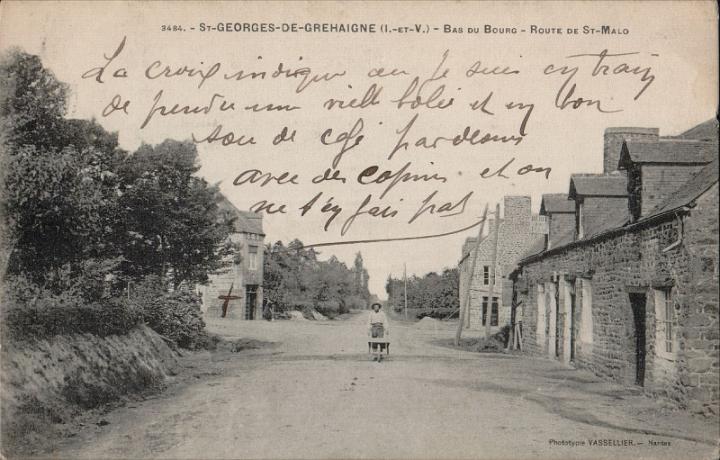 3484. - ST-GEORGES-DE-GREHAIGNE (I.-ET-V.) - BAS DU BOURG - ROUTE DE ST-MALO
La croix indique ou Je suis en train
de prendre une vielle bolée et un bon
sou de café pardessus
avec des copins et on
ne s'en fais pas
Phototypie VASSELLIER. - Nantes